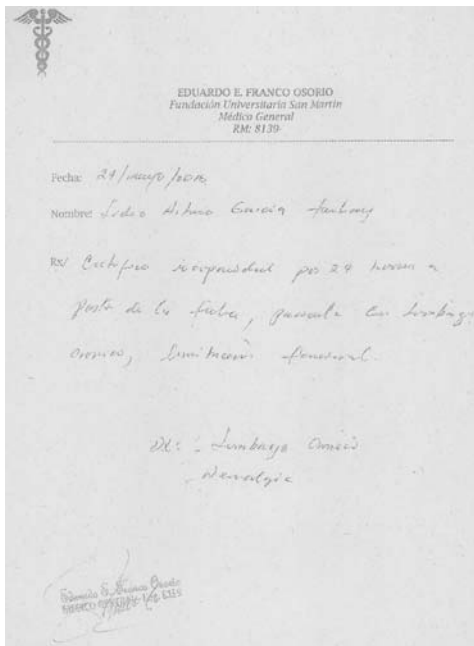 EDUARDO E. FRANCO OSORIO
Fundación Universitaria San Martín
Médico General
RM: 8139-
Fecha: 24/mayo/2016
Nombre: Isidro Arturo García
Rx/ Certifico incapacidad por 24 horas a
partir de la fecha, paciente con lumbago
cronico, limitacion funcional.
DX: - Lumbago Cronico
- Neuralgia
Eduardo E. Franco Osorio
MEDICO GENERAL